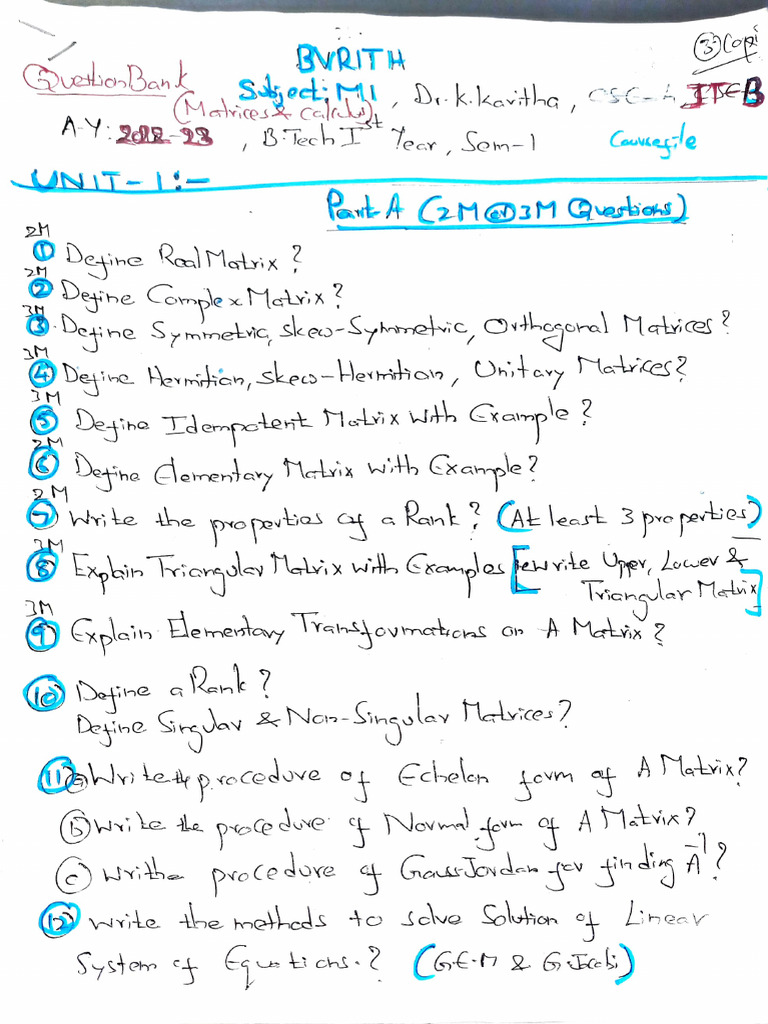 ③Copi
BVRITH
Question Bank
Subject: M1, Dr. K. Kavitha, CSE-A, ITE-B
(Matrices & Calculus)
A-Y: 2022-23, B.Tech Ist Year, Sem-1
Coursefile
UNIT-1:-
Part-A (2M @ 3M Questions)
2M
① Define Real Matrix?
2M
② Define Complex Matrix?
3M
③ Define Symmetric, Skew-Symmetric, Orthogonal Matrices?
3M
④ Define Hermitian, Skew-Hermitian, Unitary Matrices?
3M
⑤ Define Idempotent Matrix with Example?
2M
⑥ Define Elementary Matrix with Example?
2M
⑦ Write the properties of a Rank? (At least 3 properties)
3M
⑧ Explain Triangular Matrix with Examples [write Upper, Lower &
Triangular Matrix]
3M
⑨ Explain Elementary Transformations on A Matrix?
⑩ Define a Rank?
Define Singular & Non-Singular Matrices?
⑪ ⓐ Write the procedure of Echelon form of A Matrix?
ⓑ Write the procedure of Normal form of A Matrix?
ⓒ Writhe procedure of Gauss-Jordan for finding A⁻¹?
⑫ Write the methods to solve Solution of Linear
System of Equations.? (G.E.M & G.Jacobi)